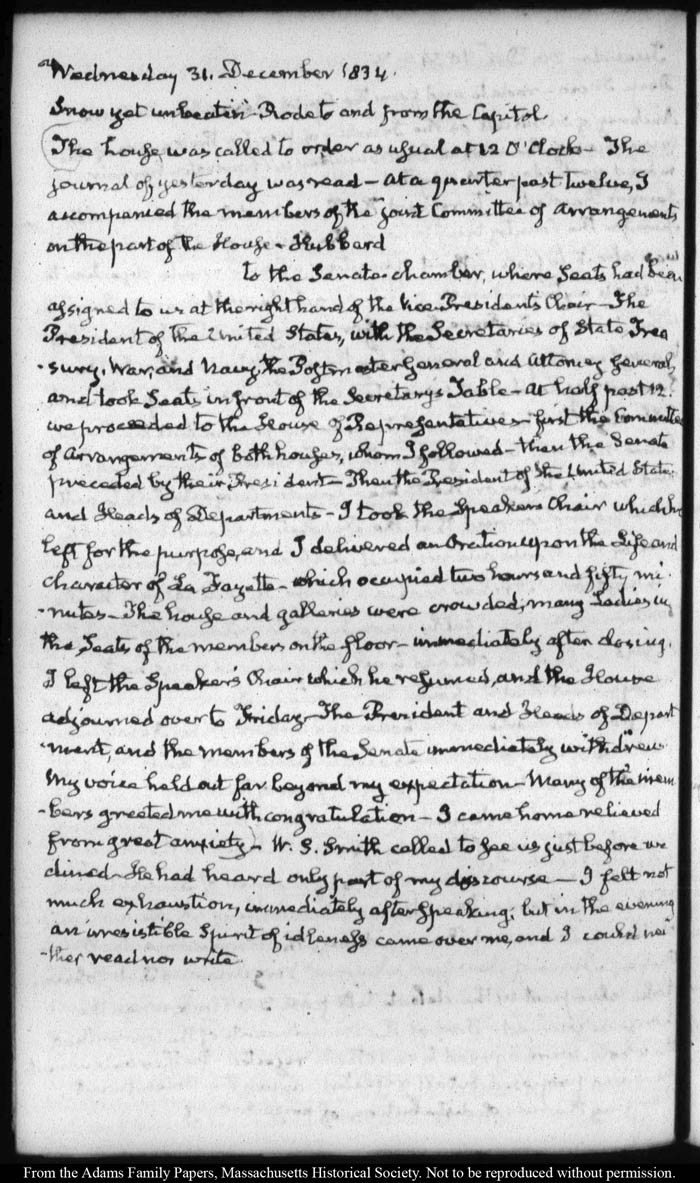 Wednesday 31. December 1834.
Snow yet unbeaten. Rode to and from the Capitol
The house, was called to order as usual at 12 O'Clock – The
journal of yesterday was read – at a quarter past twelve, I
accompanied the members of the joint Committee of arrangements
on the part of the House – Hubbard
to the Senate-chamber, where Seats had been
assigned to us at the right hand of the Vice-Presidents Chair – The
President of the United States, with the Secretaries of State Trea
-sury, War, and Navy, the Postmaster General and Attorney General,
and took Seats in front of the Secretary's Table – at half past 12.
we proceeded to the House of Representatives – first the Committee
of arrangements of both houses, whom I followed – then the Senate
preceded by their President – Then the President of the United States
and Heads of Departments – I took the Speakers Chair which he
left for the purpose, and I delivered an Oration upon the Life and
character of La Fayette – which occupied two hours and fifty mi
-nutes – The house and galleries were crowded; many Ladies in
the Seats of the members on the floor – immediately after closing,
I left the Speaker's Chair which he resumed, and the House
adjourned over to Friday – The President and Heads of Depart
-ment, and the members of the Senate immediately withdrew
My voice held out far beyond my expectation – Many of the mem
-bers greeted me with congratulation – I came home relieved
from great anxiety – W. S. Smith called to see us just before we
dined – He had heard only part of my discourse – I felt not
much exhaustion, immediately after speaking; but in the evening
an irresistible Spirit of idleness came over me, and I could nei
-ther read nor write
From the Adams Family Papers, Massachusetts Historical Society. Not to be reproduced without permission.